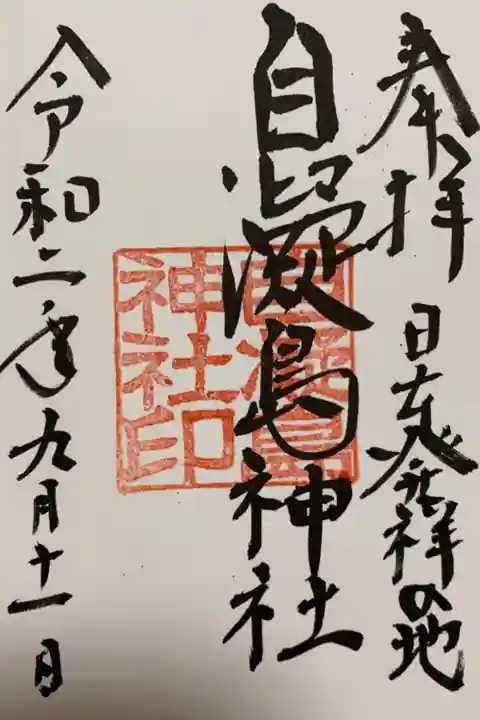 奉拝
日本発祥の地
自凝島神社
自凝島
神社印
令和二年九月十一日